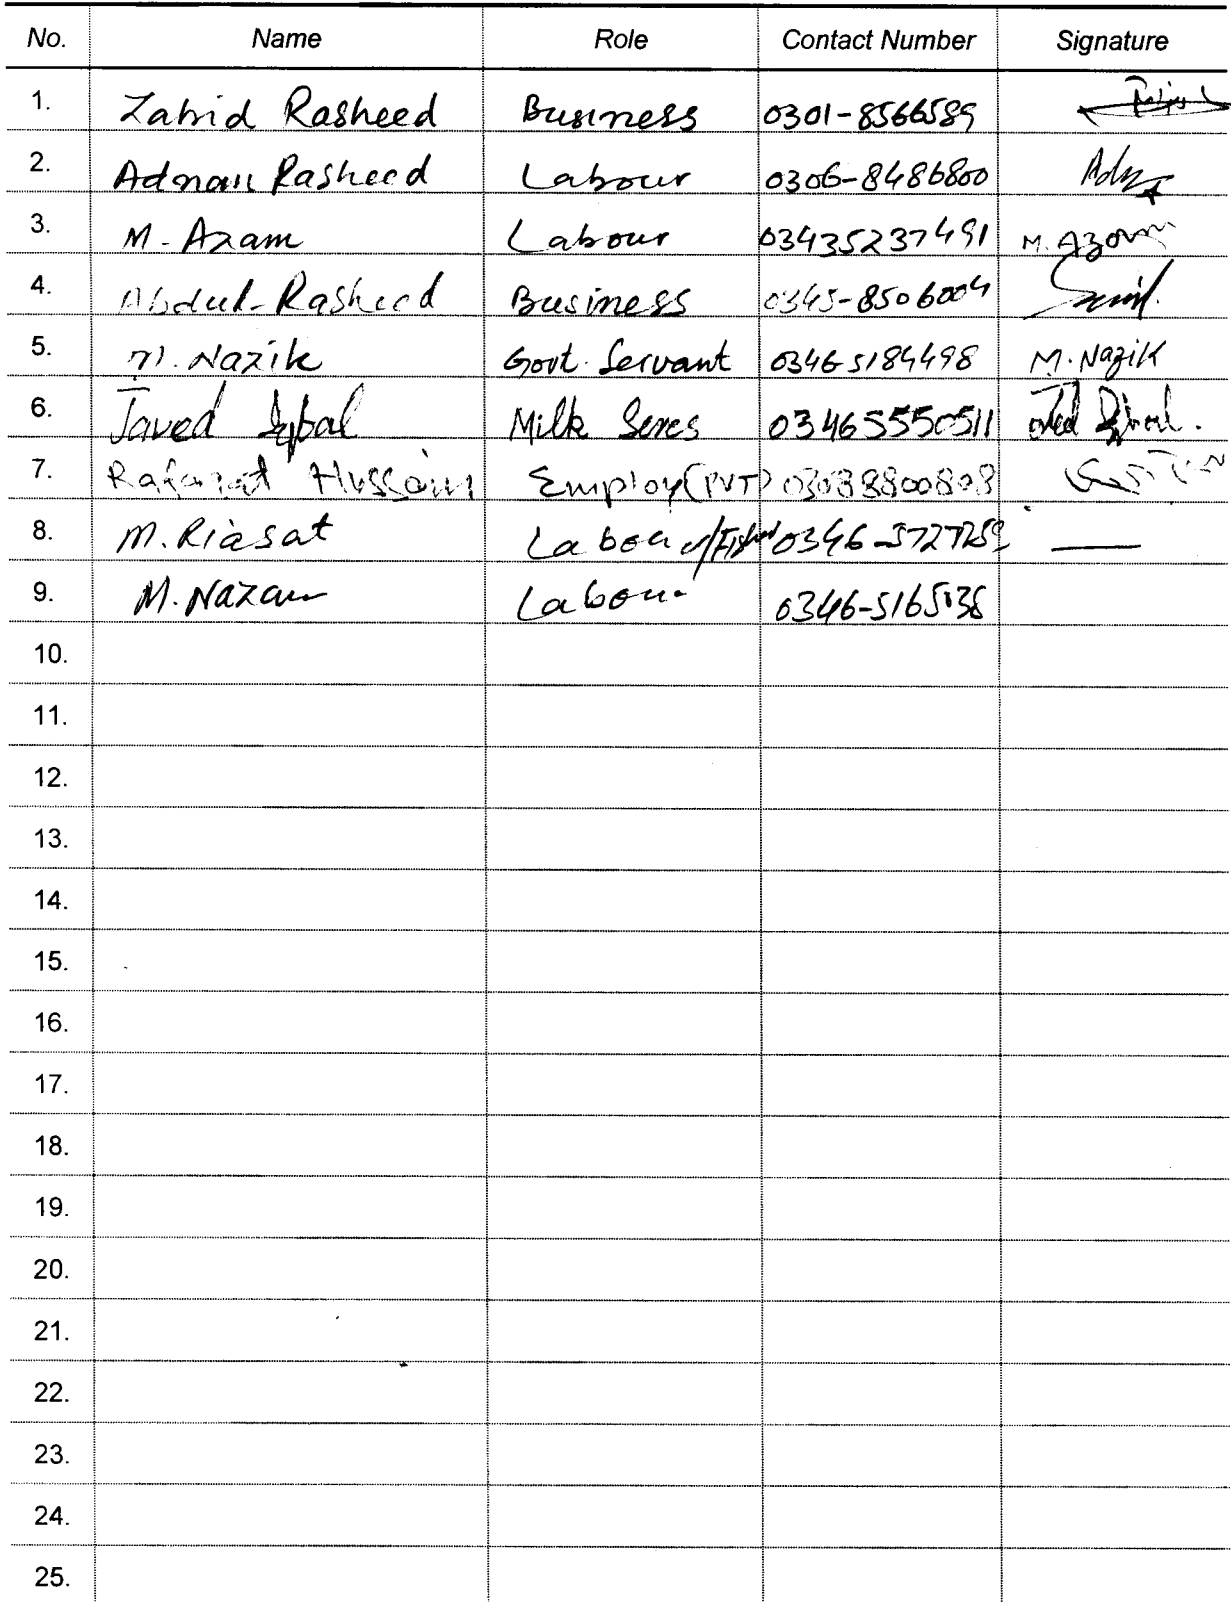 No. Name Role Contact Number Signature
1. Zahid Rasheed Business 0301-8566589
2. Adnan Rasheed Labour 0306-8486800
3. M. Azam Labour 03435237491 M. Azam
4. Abdul-Rasheed Business 0345-8506004
5. M. Nazik Govt. Servant 0346 5184498 M. Nazik
6. Javed Iqbal Milk 03465550511
7. Hussain Employ(PVT) 03038800808
8. M. Riasat
9. M. Labour
10.
11.
12.
13.
14.
15.
16.
17.
18.
19.
20.
21.
22.
23.
24.
25.